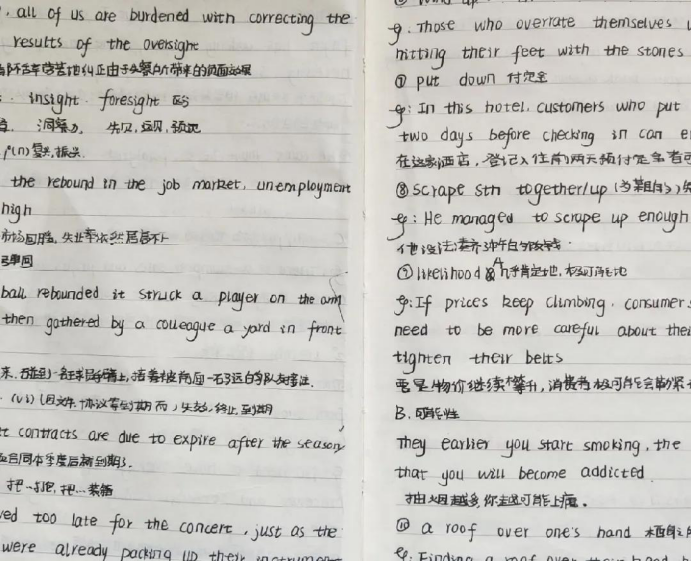 , all of us are burdened with correcting the
results of the oversight
insight. foresight 区别
洞察力, 先见, 远见, 预见
(n) 复兴, 振头.
the rebound in the job market, unemployment
high
市场回暖, 失业率依然居高不下
ball rebounded it struck a player on the arm
then gathered by a colleague a yard in front
(vi) (因文件、协议等到期而) 失效, 终止, 到期
contracts are due to expire after the season
合同本季度后就到期了.
把…打包, 把…装箱
ved too late for the concert, just as the
were already packing up their instrument
eg. Those who overrate themselves
hitting their feet with the stones
⑦ put down 付定金
eg: In this hotel, customers who put
two days before checking in can e
在这家酒店, 登记入住前两天预付定金者可
⑧ scrape sth together/up
eg: He managed to scrape up enough
⑨ likelihood A
eg: If prices keep climbing, consumers
need to be more careful about thei
tighten their belts
要是物价继续攀升, 消费者极可能会勒紧
B. 可能性
They earlier you start smoking, the
that you will become addicted.
抽烟越多你越可能上瘾.
⑩ a roof over one's hand 栖身之所
eg: Finding a roof over their head